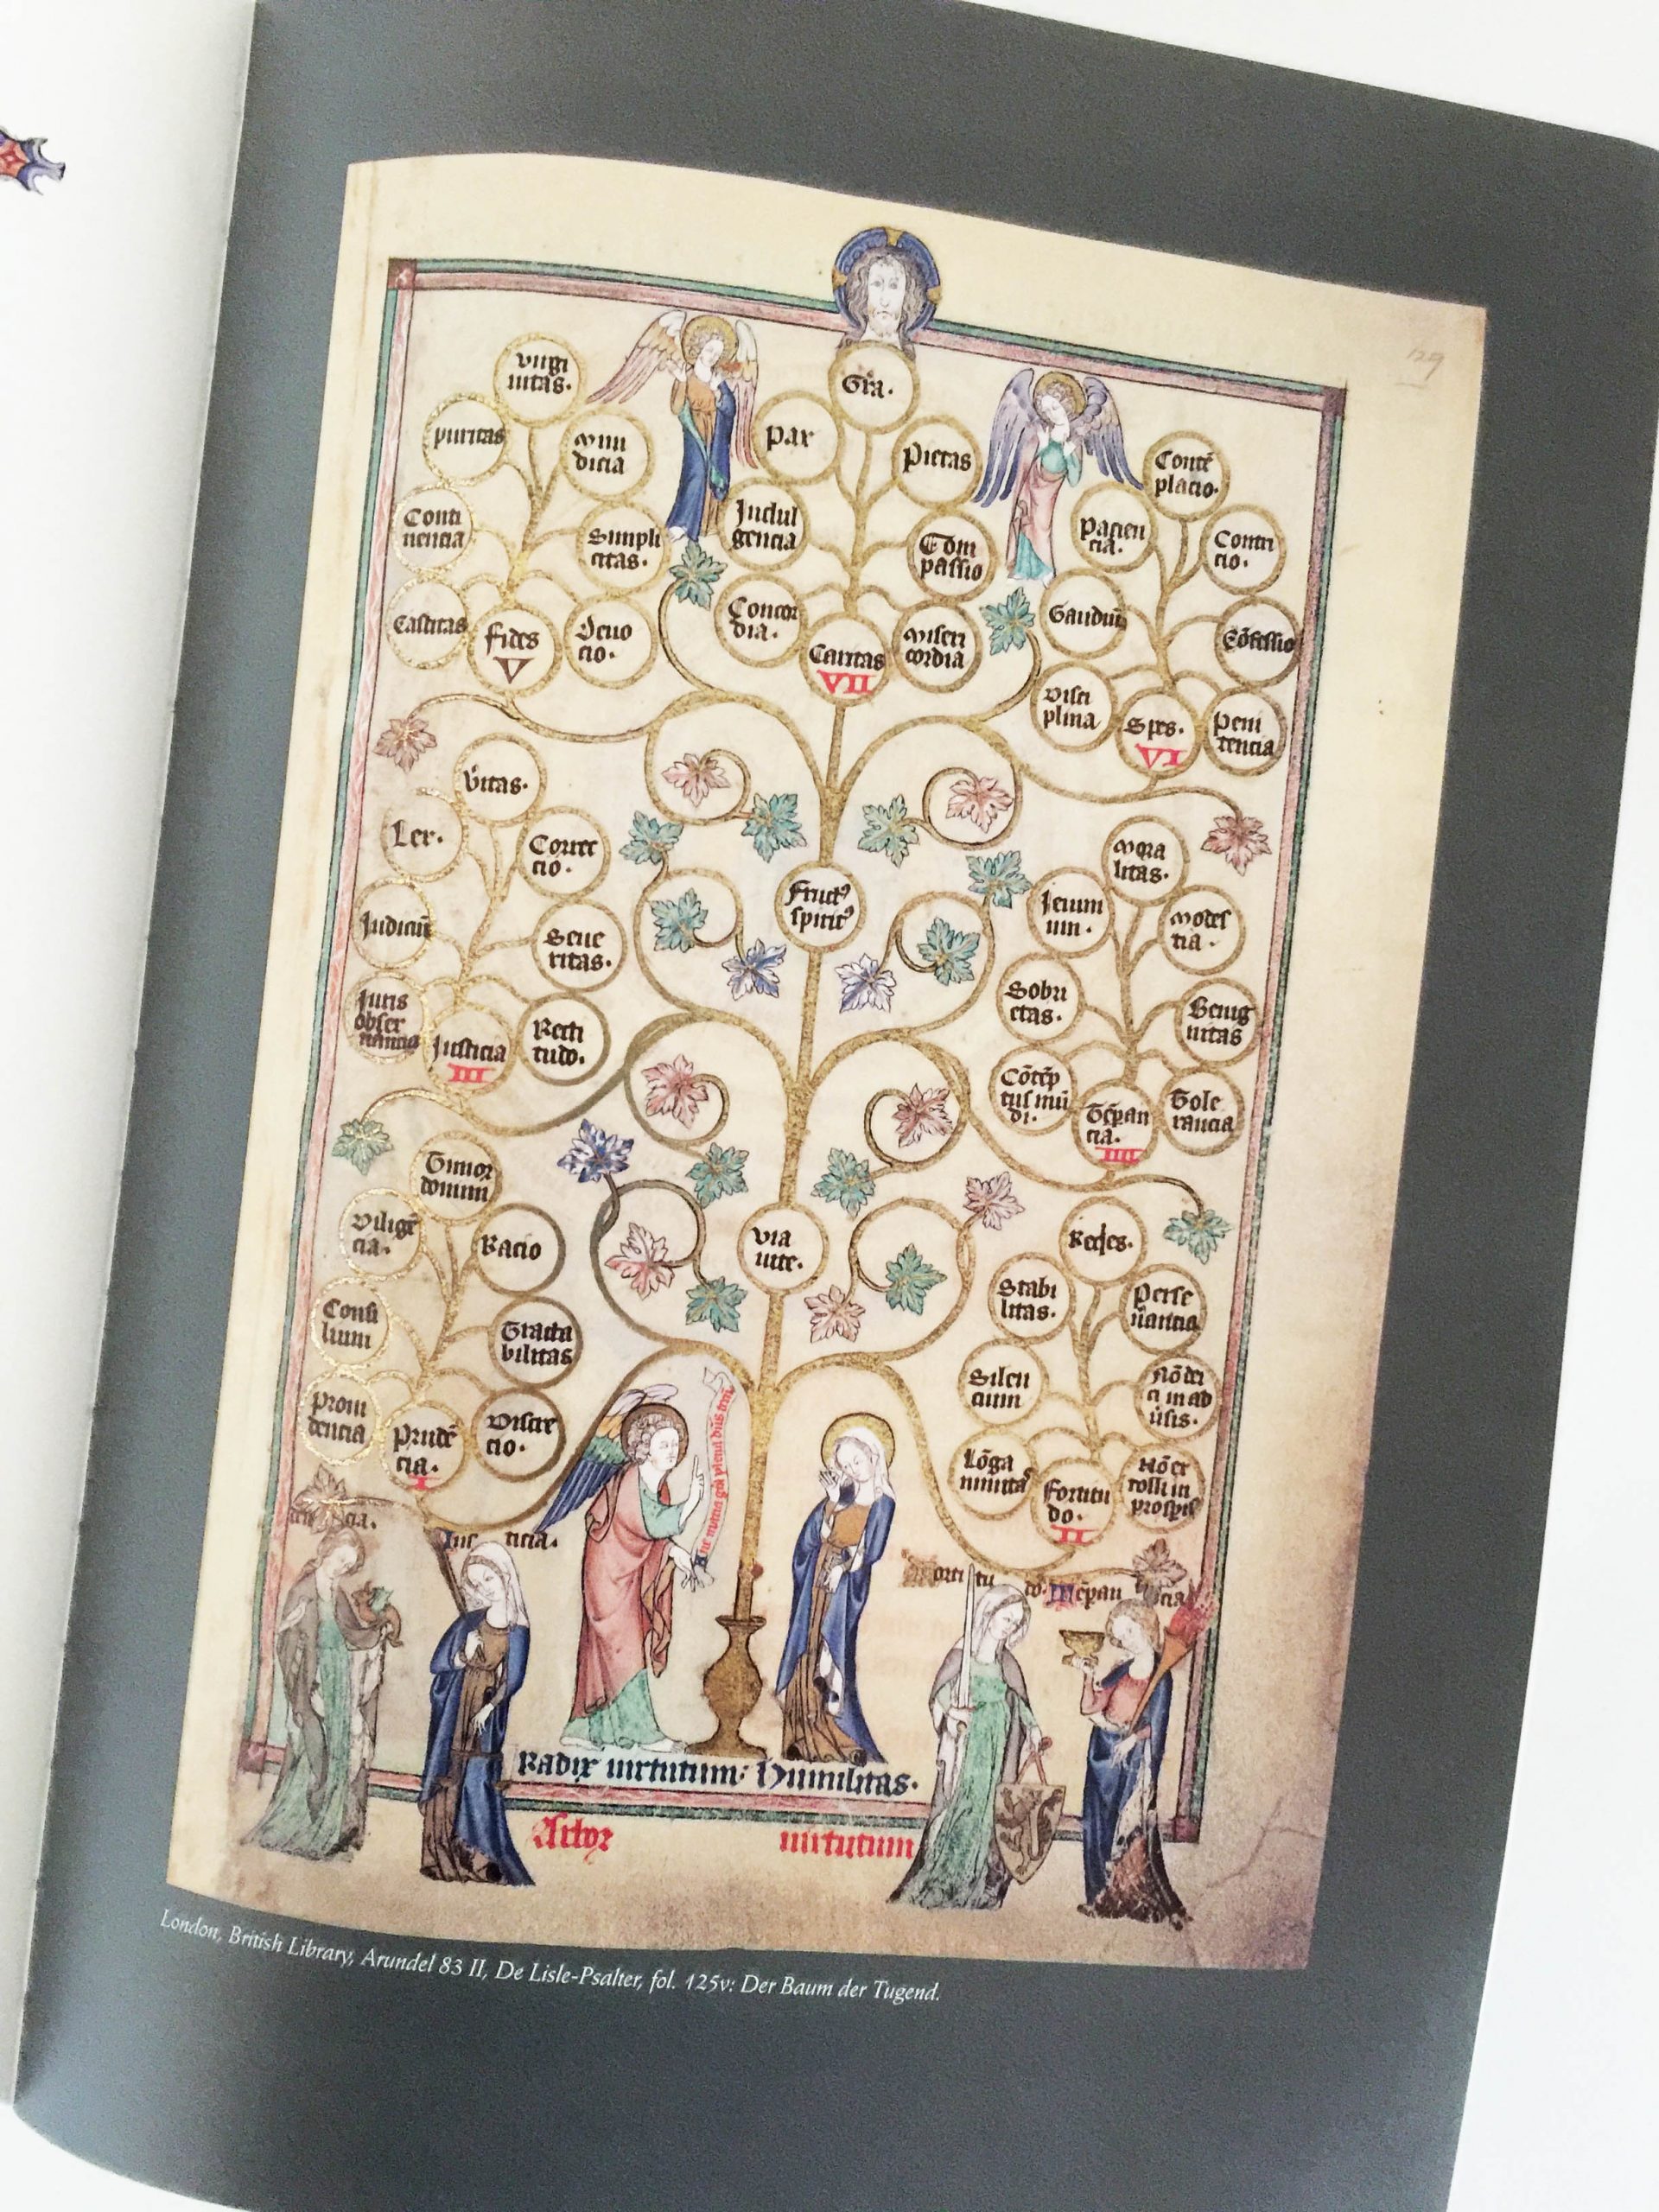 129
virgi
nitas.
puritas
Mun
dicia
Conti
nencia
Simpli
citas.
Castitas
Fides
V
Deuo
cio.
Gr̄a.
Pax
Pietas
Indul
gencia
Com
passio
Concor
dia.
Caritas
VII
Miseri
cordia
Contē
placio.
Pacien
cia.
Contri
cio.
Gaudiū
Cōfessio
Disci
plina
Spes.
VI
Peni
tencia
Lex.
Correc
cio.
Judiciū
Seue
ritas.
Juris
obser
uancia
Justicia
III
Recti
tudo.
Fruct⁹
spirit⁹
Mora
litas.
Jeiuni
um.
Modes
tia.
Sobri
etas.
Benig
nitas
Cōtēp
tus mū
di.
Tēperan
cia.
IIII
Tole
rancia
Timor
domini
Diligē
cia.
Racio
Consi
lium
Tracta
bilitas
Proui
dencia
Prudē
cia.
I
Discre
cio.
via
uite.
Stabi
litas.
Perse
uancia
Silen
cium
Lōga
nimitas
Fortitu
do.
II
Nō ex
tolli in
prospis
Jus ticia.
Radix uirtutum: Humilitas.
Arbor uirtutum
London, British Library, Arundel 83 II, De Lisle-Psalter, fol. 125v: Der Baum der Tugend.